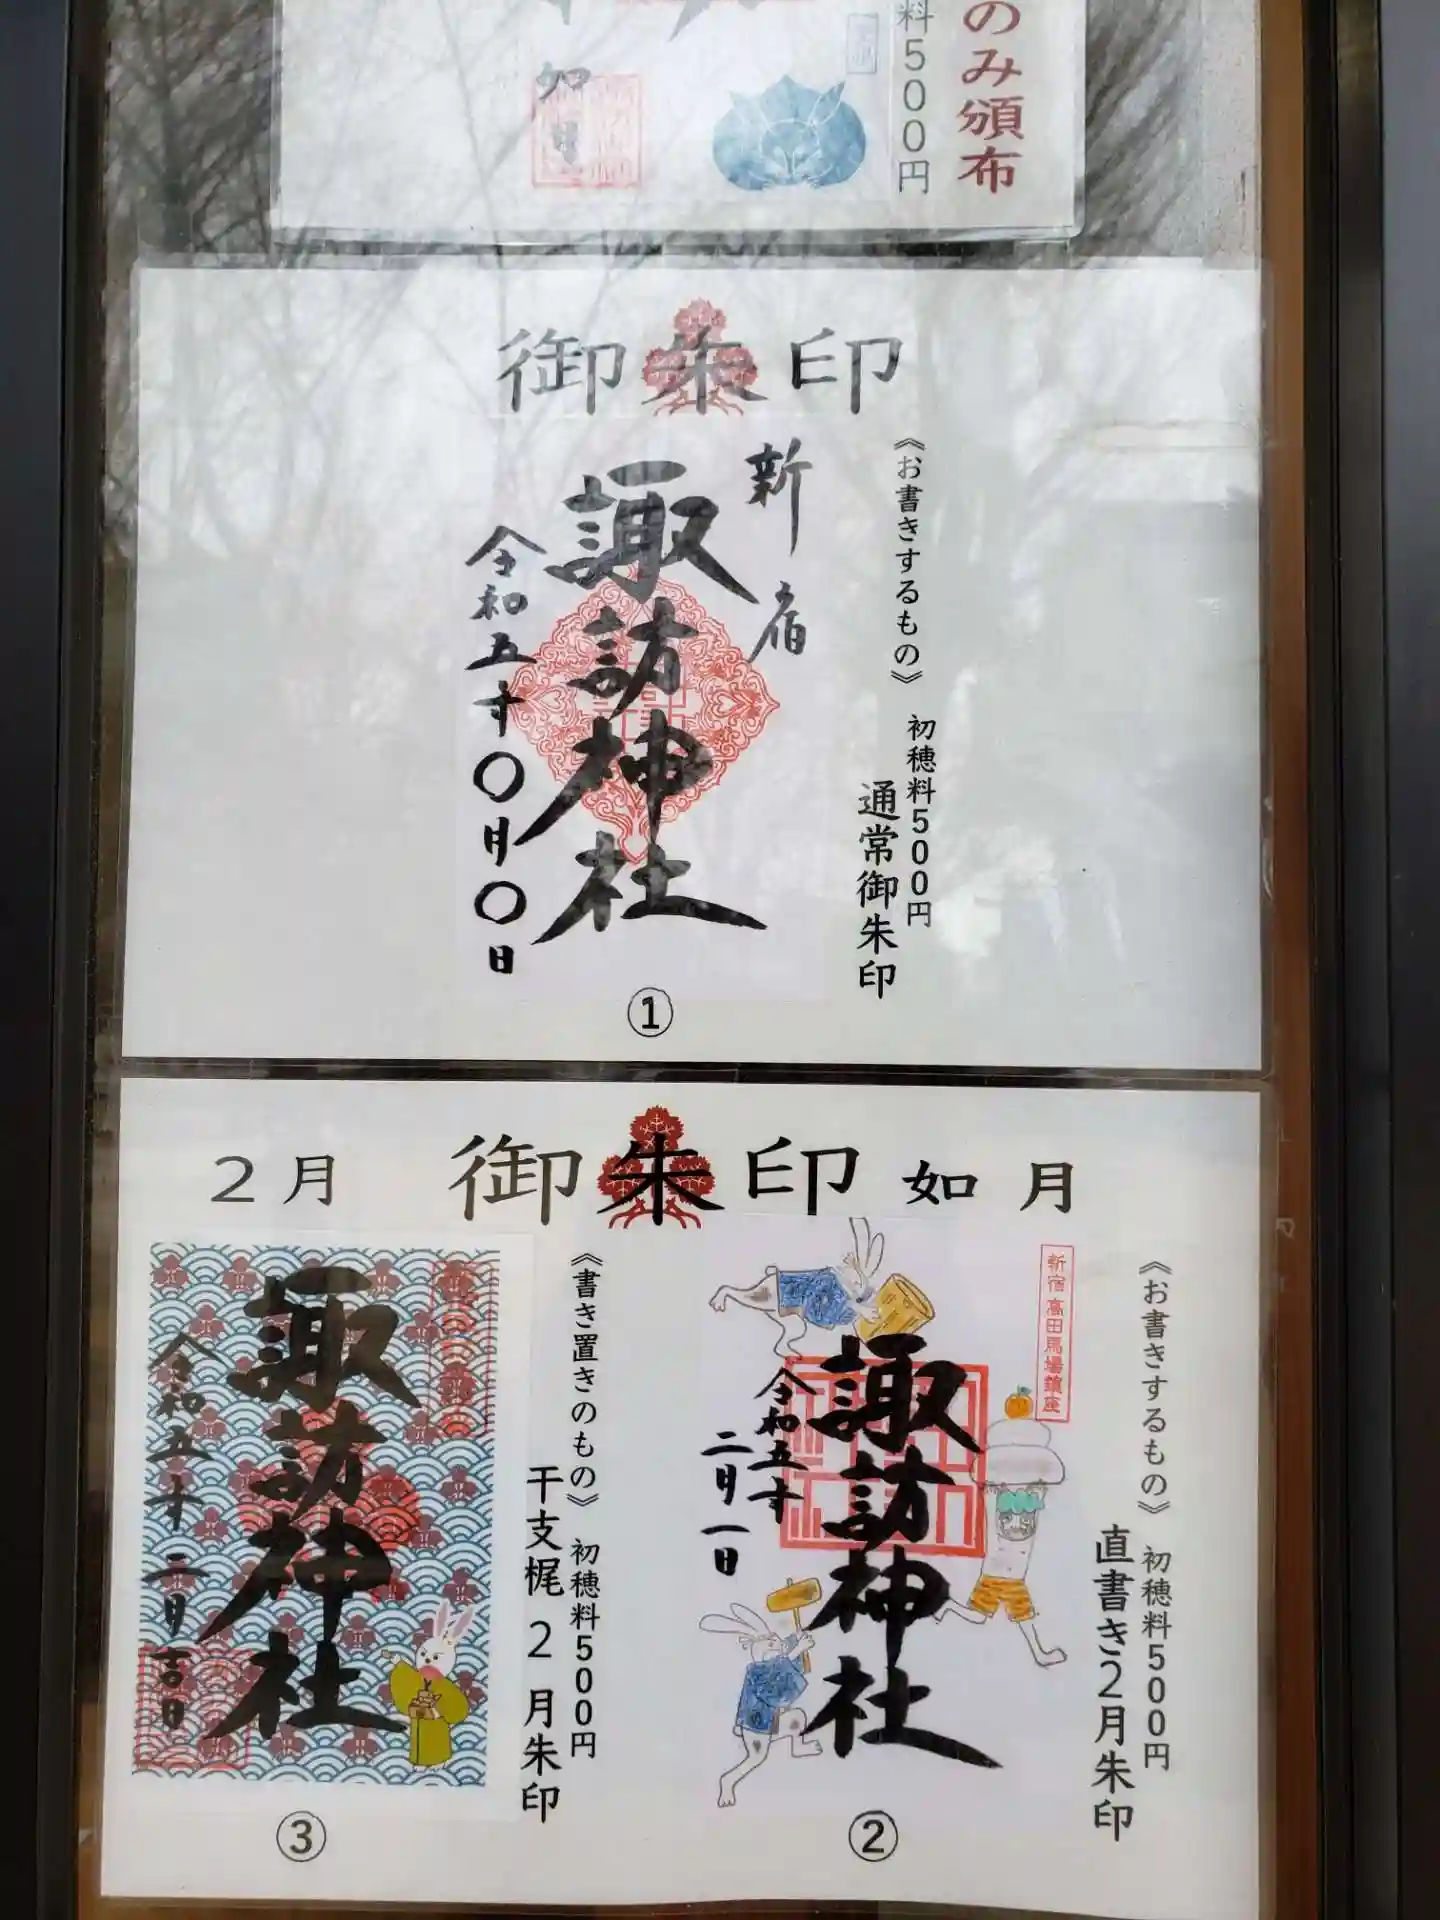 のみ頒布
料500円
如月
御朱印
《お書きするもの》 初穂料500円
通常御朱印
新宿
諏訪神社
令和五年〇月〇日
①
2月 御朱印 如月
《お書きするもの》 初穂料500円
直書き2月朱印
新宿高田馬場鎮座
諏訪神社
令和五年
二月一日
②
《書き置きのもの》 初穂料500円
干支梶2月朱印
諏訪神社
令和五年二月吉日
③